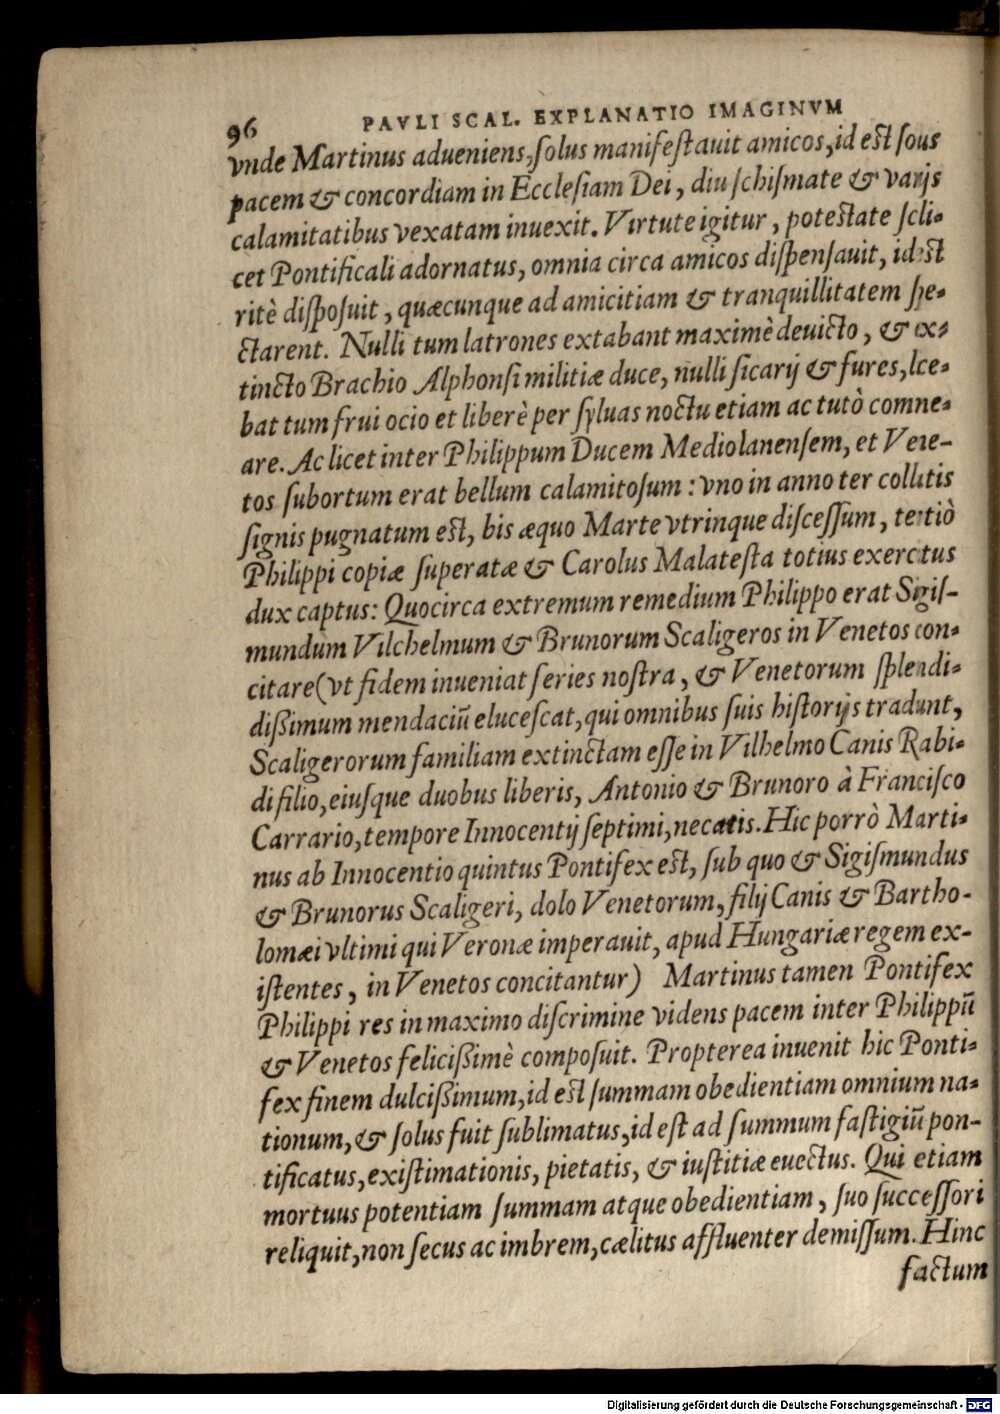 96 PAVLI SCAL. EXPLANATIO IMAGINVM
vnde Martinus adueniens, ſolus manifeſtauit amicos, id eſt ſous
pacem & concordiam in Eccleſiam Dei, diu ſchiſmate & varijs
calamitatibus vexatam inuexit. Virtute igitur, poteſtate ſcli-
cet Pontificali adornatus, omnia circa amicos diſpenſauit, id eſt
ritè diſpoſuit, quæcunque ad amicitiam & tranquillitatem ſpe-
ctarent. Nulli tum latrones extabant maximè deuicto, & ex-
tincto Brachio Alphonſi militiæ duce, nulli ſicarij & fures, lce-
bat tum frui ocio et liberè per ſyluas noctu etiam ac tutò comne-
are. Ac licet inter Philippum Ducem Mediolanenſem, et Vene-
tos ſubortum erat bellum calamitoſum: vno in anno ter collatis
ſignis pugnatum eſt, bis æquo Marte vtrinque diſceſſum, tertiò
Philippi copiæ ſuperatæ & Carolus Malateſta totius exercitus
dux captus: Quocirca extremum remedium Philippo erat Sigiſ-
mundum Vilchelmum & Brunorum Scaligeros in Venetos con-
citare (vt fidem inueniat ſeries noſtra, & Venetorum ſplendi-
dißimum mendaciū eluceſcat, qui omnibus ſuis hiſtorijs tradunt,
Scaligerorum familiam extinctam eſſe in Vilhelmo Canis Rabi-
di filio, eiuſque duobus liberis, Antonio & Brunoro à Franciſco
Carrario, tempore Innocentij ſeptimi, necatis. Hic porrò Marti-
nus ab Innocentio quintus Pontifex eſt, ſub quo & Sigiſmundus
& Brunorus Scaligeri, dolo Venetorum, filij Canis & Bartho-
lomæi vltimi qui Veronæ imperauit, apud Hungariæ regem ex-
iſtentes, in Venetos concitantur) Martinus tamen Pontifex
Philippi res in maximo diſcrimine videns pacem inter Philippū
& Venetos felicißimè compoſuit. Propterea inuenit hic Ponti-
fex finem dulcißimum, id eſt ſummam obedientiam omnium na-
tionum, & ſolus fuit ſublimatus, id eſt ad ſummum faſtigiū pon-
tificatus, exiſtimationis, pietatis, & iuſtitiæ euectus. Qui etiam
mortuus potentiam ſummam atque obedientiam, ſuo ſucceſſori
reliquit, non ſecus ac imbrem, cælitus affluenter demiſſum. Hinc
factum
Digitalisierung gefördert durch die Deutsche Forschungsgemeinschaft - DFG